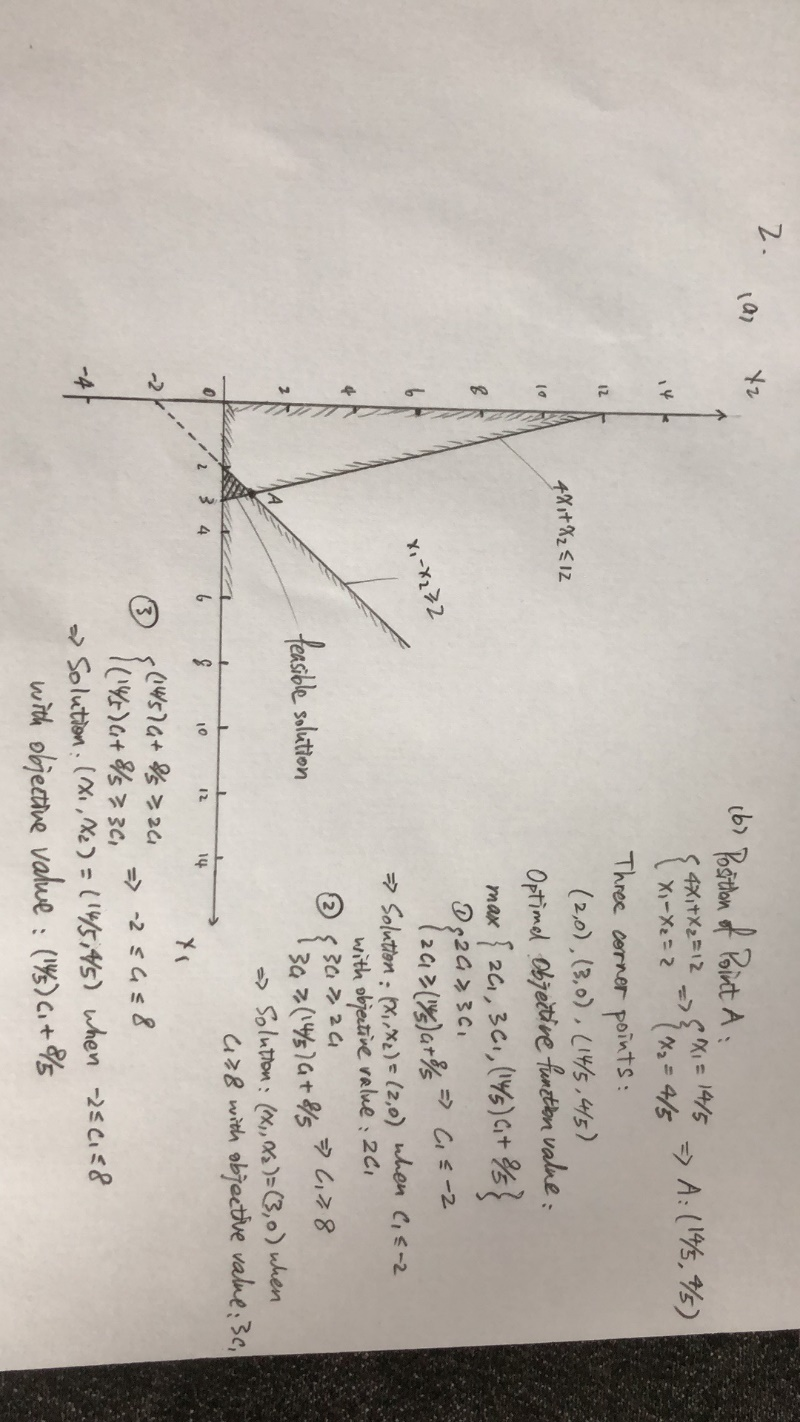 2. (a)
x₂
14
12
10
8
6
4
2
0
-2
-4
2 3 4 6 8 10 12 14
x₁
4x₁+x₂≤12
x₁-x₂≥2
A
feasible solution
(b) Position of Point A:
{4x₁+x₂=12 ⇒ {x₁=14/5 ⇒ A: (14/5, 4/5)
{x₁-x₂=2 {x₂=4/5
Three corner points:
(2,0), (3,0), (14/5, 4/5)
Optimal objective function value:
max {2C₁, 3C₁, (14/5)C₁+8/5}
① {2C₁≥3C₁
{2C₁≥(14/5)C₁+8/5 ⇒ C₁≤-2
⇒ Solution: (x₁,x₂)=(2,0) when C₁≤-2
with objective value: 2C₁
② {3C₁≥2C₁
{3C₁≥(14/5)C₁+8/5 ⇒ C₁≥8
⇒ Solution: (x₁,x₂)=(3,0) when
C₁≥8 with objective value: 3C₁
③ {(14/5)C₁+8/5≥2C₁
{(14/5)C₁+8/5≥3C₁ ⇒ -2≤C₁≤8
⇒ Solution: (x₁,x₂)=(14/5,4/5) when -2≤C₁≤8
with objective value: (14/5)C₁+8/5